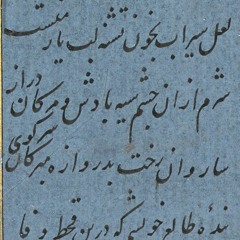 لعل سیراب بخون تشنه لب یار منست
شرم ازان چشم سیه بادش و مژکان دراز
ساروان رخت بدروازه مبر کان سر کوی
بندهٔ طالع خویشم که درین قحط وفا